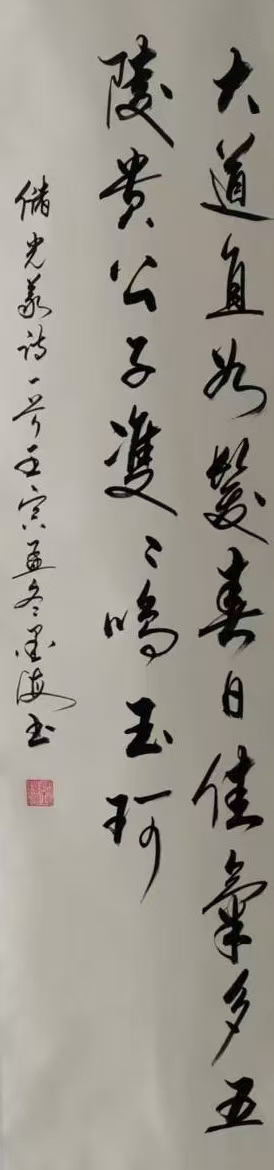 大道直如髮春日佳氣多五
陵貴公子雙〻鳴玉珂
储光羲诗一首壬寅孟冬墨海书